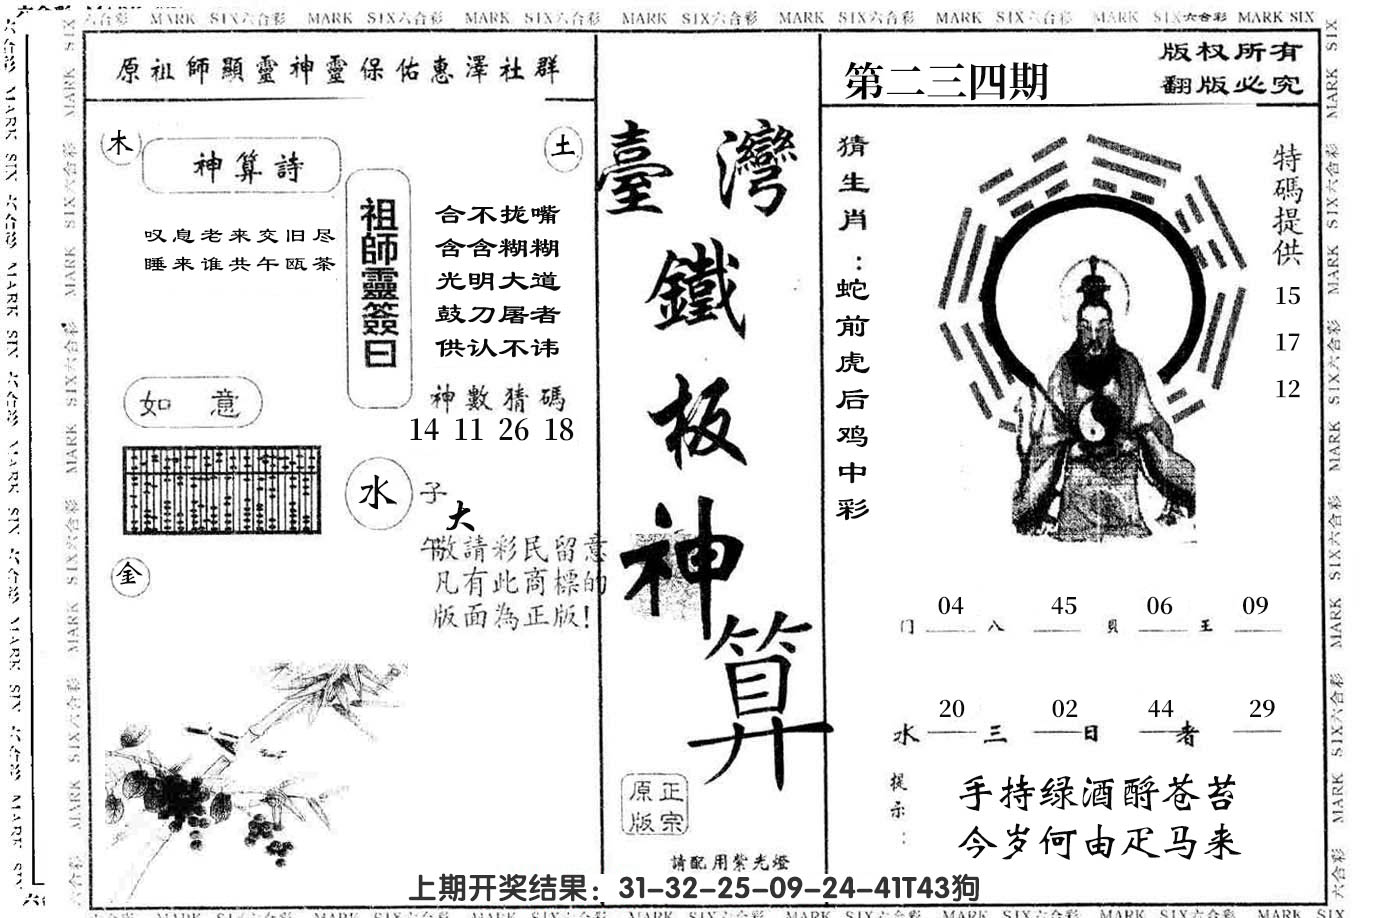 MARK SIX六合彩 MARK SIX六合彩 MARK SIX六合彩 MARK SIX六合彩 MARK SIX六合彩 MARK SIX六合彩 MARK SIX六合彩 MARK SIX
原祖師顯靈神靈保佑惠澤社群
木
神算詩
土
叹息老来交旧尽
睡来谁共午瓯茶
祖師靈簽曰
合不拢嘴
含含糊糊
光明大道
鼓刀屠者
供认不讳
神數猜碼
14 11 26 18
如意
水
子
大
午
敬請彩民留意
凡有此商標的
版面為正版!
金
臺灣
鐵
板
神
算
正宗
原版
請配用紫光燈
第二三四期
版权所有
翻版必究
猜生肖:蛇前虎后鸡中彩
特碼提供
15
17
12
04 45 06 09
门 八 貝 王
20 02 44 29
水 三 日 者
提示:
手持绿酒酹苍苔
今岁何由疋马来
上期开奖结果：31-32-25-09-24-41T43狗